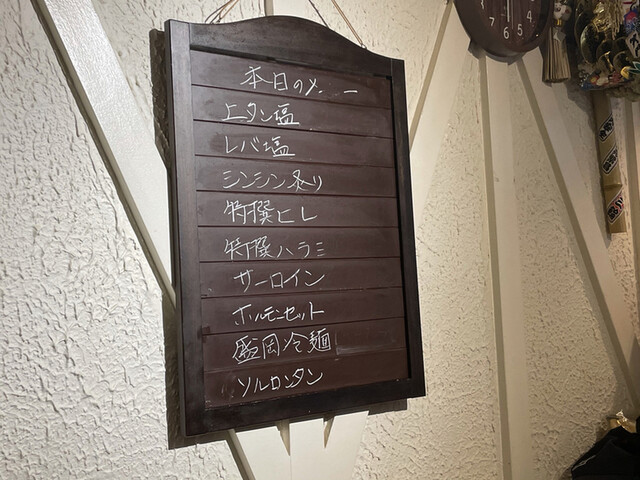 本日のメニュー
上タン塩
レバ塩
シンシン炙り
特撰ヒレ
特撰ハラミ
サーロイン
ホルモンセット
盛岡冷麺
ソルロンタン
4
5
6
7